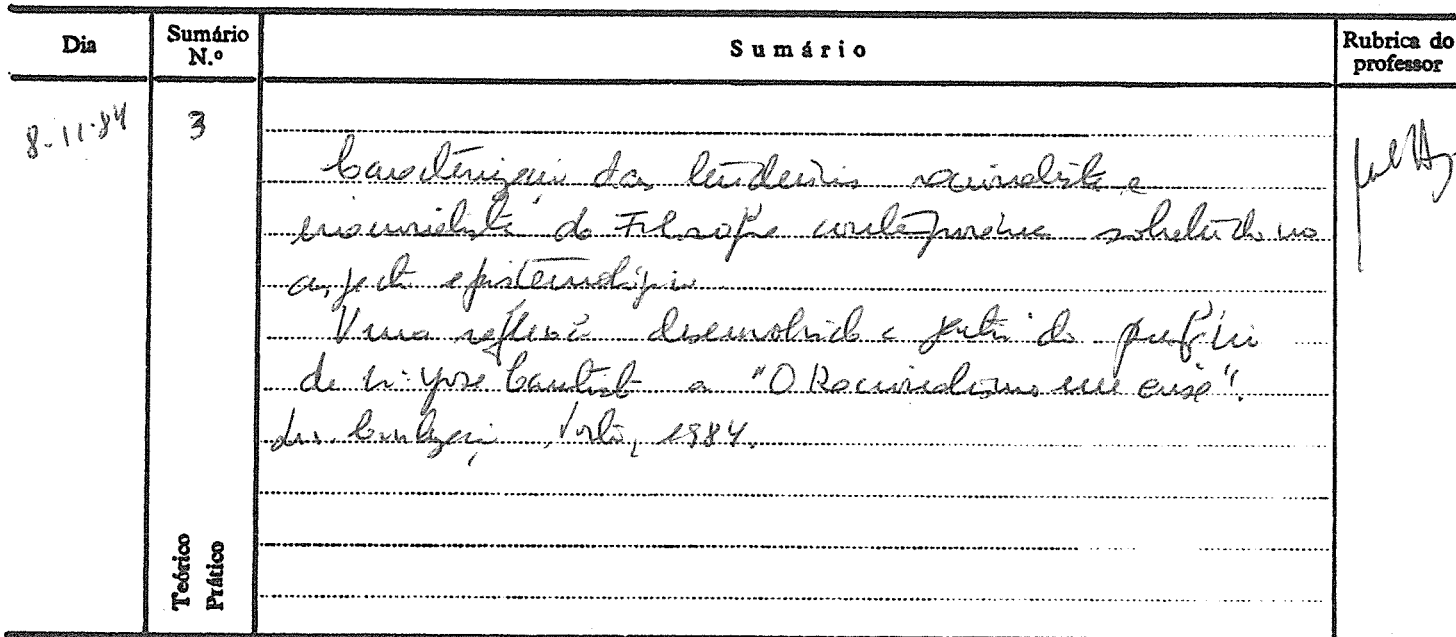 Dia
Sumário N.º
Sumário
Rubrica do professor
8-11-84
3
Caracterização das tendências racionalista e
irracionalista da Filosofia contemporânea sobretudo no
aspecto epistemológico
Uma reflexão desenvolvida a partir do prefácio
de José a "O Racionalismo em crise".
Porto, 1984.
Teórico
Prático